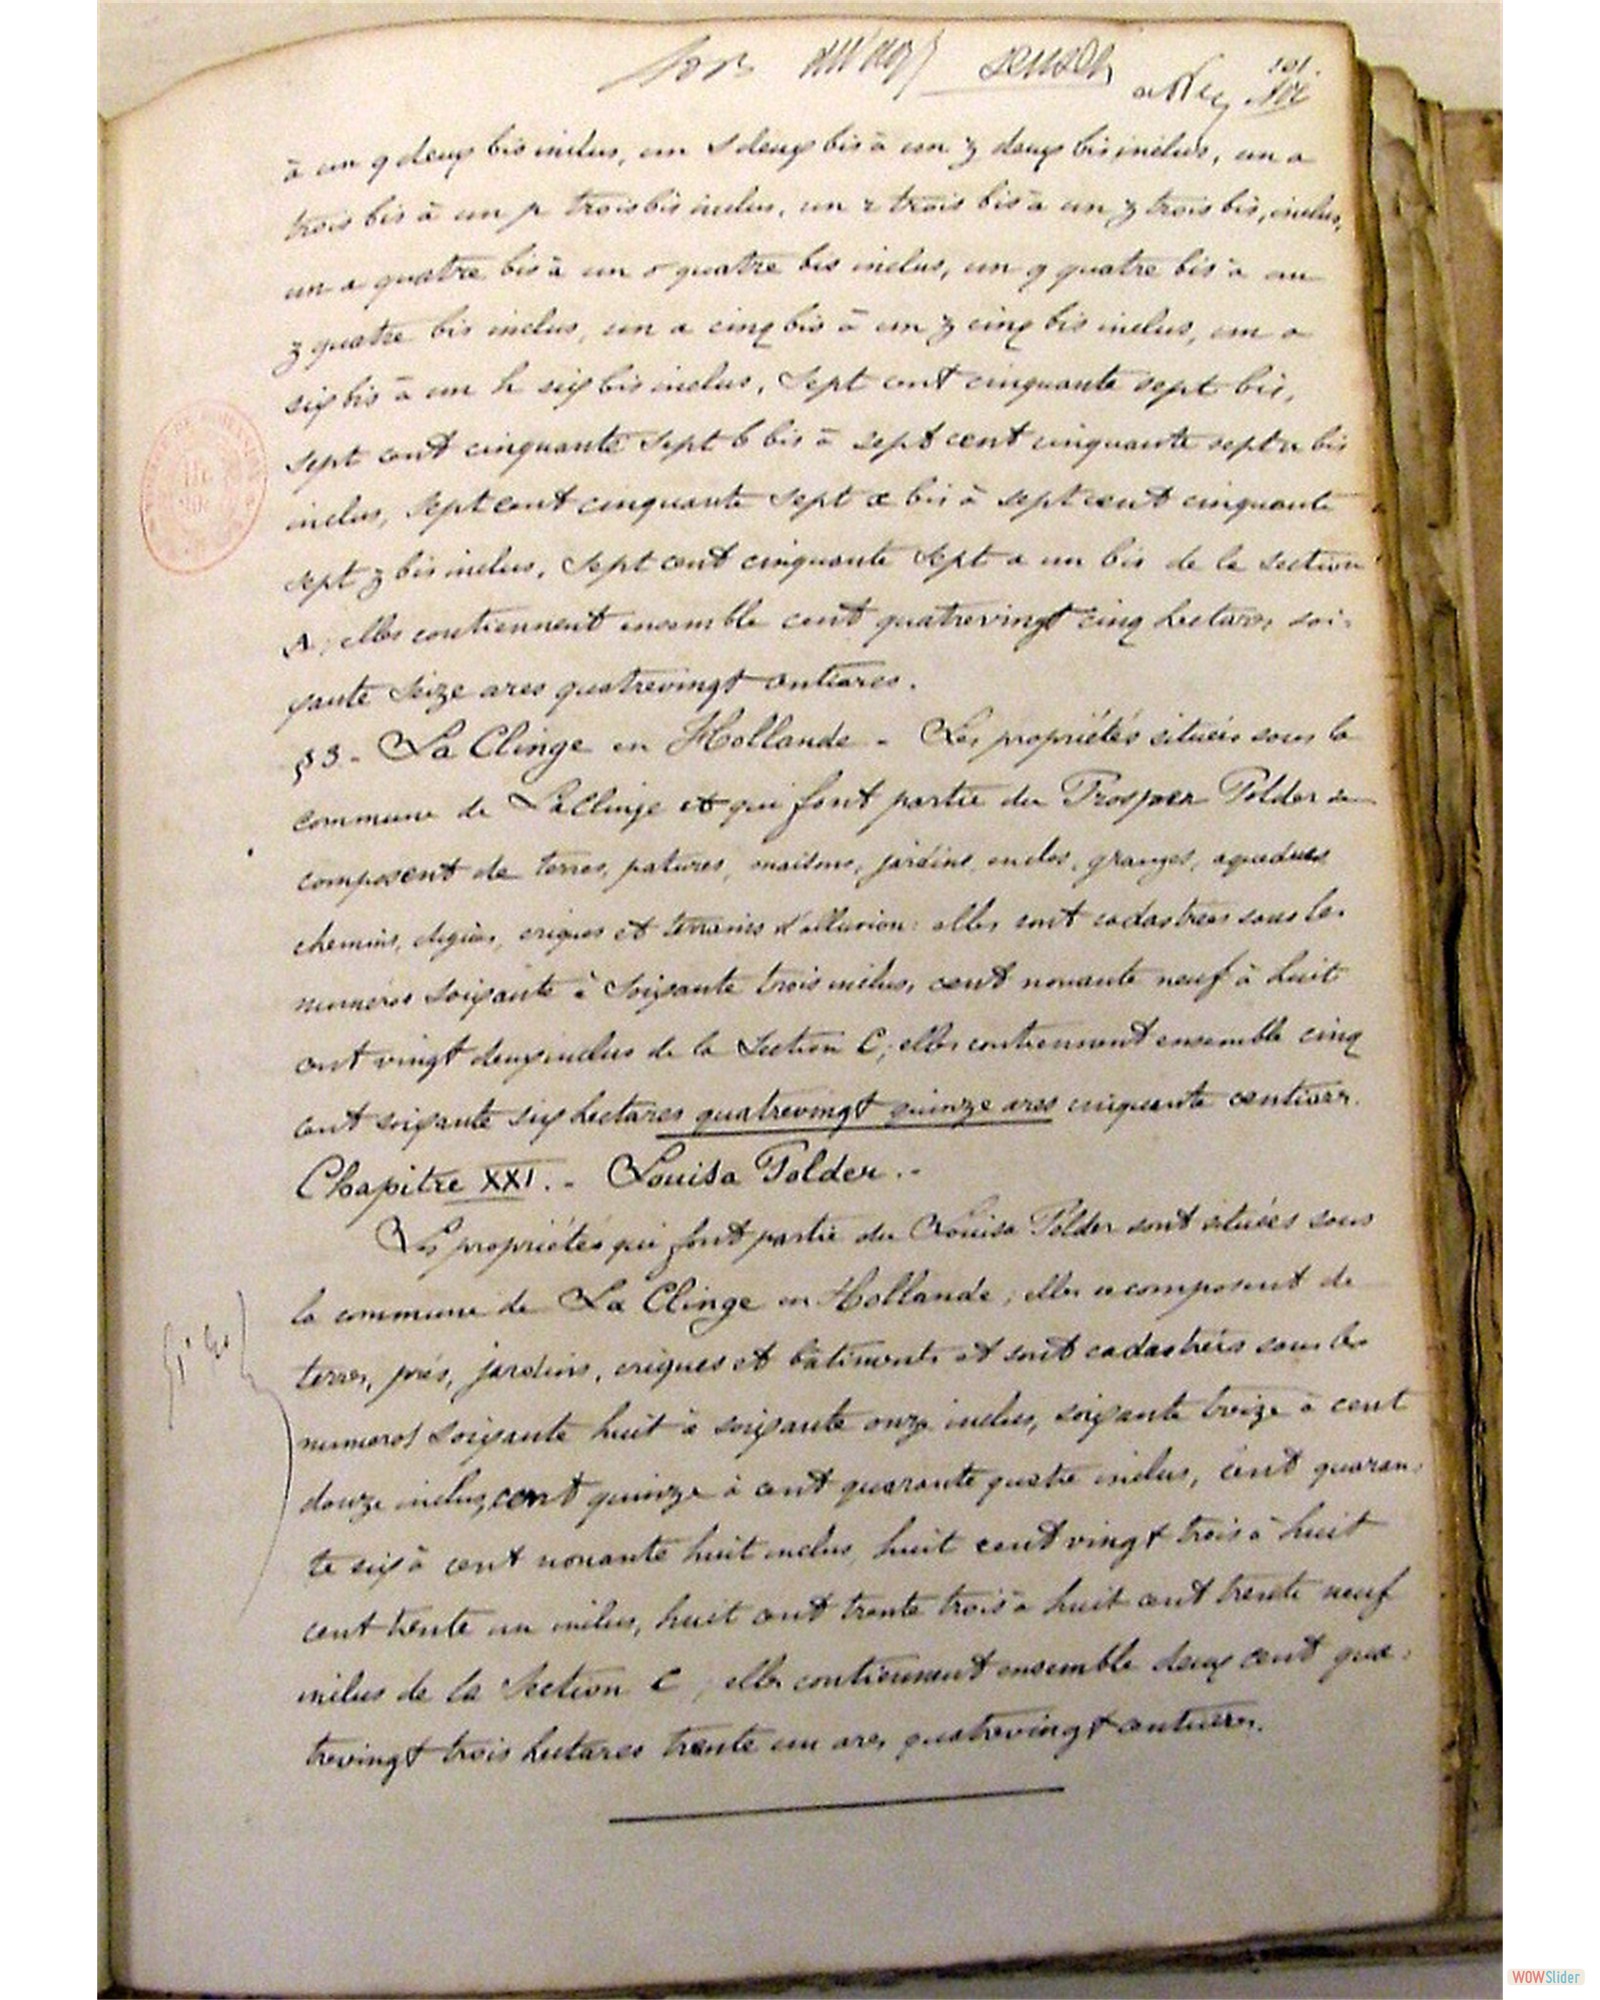 101.
à un q deux bis inclus, un s deux bis à un z deux bis inclus, un a
trois bis à un p trois bis inclus, un r trois bis à un z trois bis, inclus,
un a quatre bis à un o quatre bis inclus, un q quatre bis à un
z quatre bis inclus, un a cinq bis à un z cinq bis inclus, un a
six bis à un h six bis inclus, Sept cent cinquante sept bis,
sept cent cinquante sept b bis à sept cent cinquante sept u bis
inclus, Sept cent cinquante sept x bis à sept cent cinquante
sept z bis inclus, Sept cent cinquante sept a un bis de la section
A; elles contiennent ensemble cent quatrevingt cinq hectares soi-
xante seize ares quatrevingt centiares.
§ 3. - La Clinge en Hollande - Les propriétés situées sous la
commune de La Clinge et qui font partie du Prosper Polder se
composent de terres, patures, maisons, jardins, enclos, granges, aqueducs
chemins, digues, criques et terrains d'alluvion: elles sont cadastrées sous les
numéros soixante à soixante trois inclus, cent nonante neuf à huit
cent vingt deux inclus de la Section C; elles contiennent ensemble cinq
cent soixante six hectares quatrevingt quinze ares cinquante centiares.
Chapitre XXI. - Louisa Polder. -
Les propriétés qui font partie du Louisa Polder sont situées sous
la commune de La Clinge en Hollande; elles se composent de
terres, prés, jardins, criques et bâtiments et sont cadastrées sous les
numéros soixante huit à soixante onze inclus, soixante treize à cent
douze inclus, cent quinze à cent quarante quatre inclus, cent quaran-
te six à cent nonante huit inclus, huit cent vingt trois à huit
cent trente un inclus, huit cent trente trois à huit cent trente neuf
inclus de la Section C; elles contiennent ensemble deux cent qua-
trevingt trois hectares trente un ares quatrevingt centiares.
WOWSlider